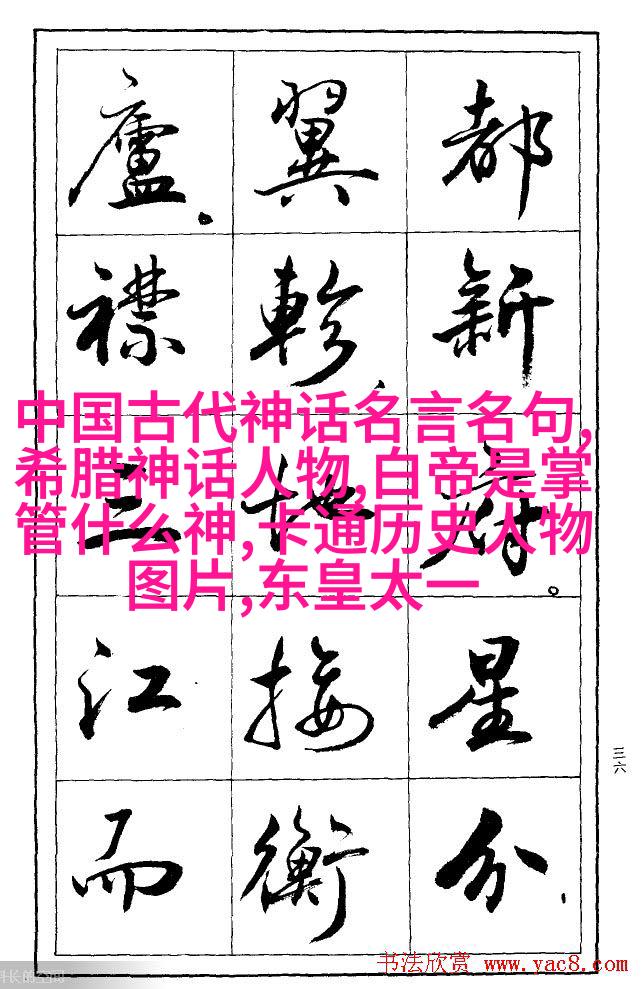 都新府。星分、
翼軫、地接衡
廬。襟三江而
中国古代神话名言名句,
希腊神话人物,白帝是掌
管什么神,卡通历史人物
图片,东皇太一
三六
书法欣赏 www.yac8.com
长的空间